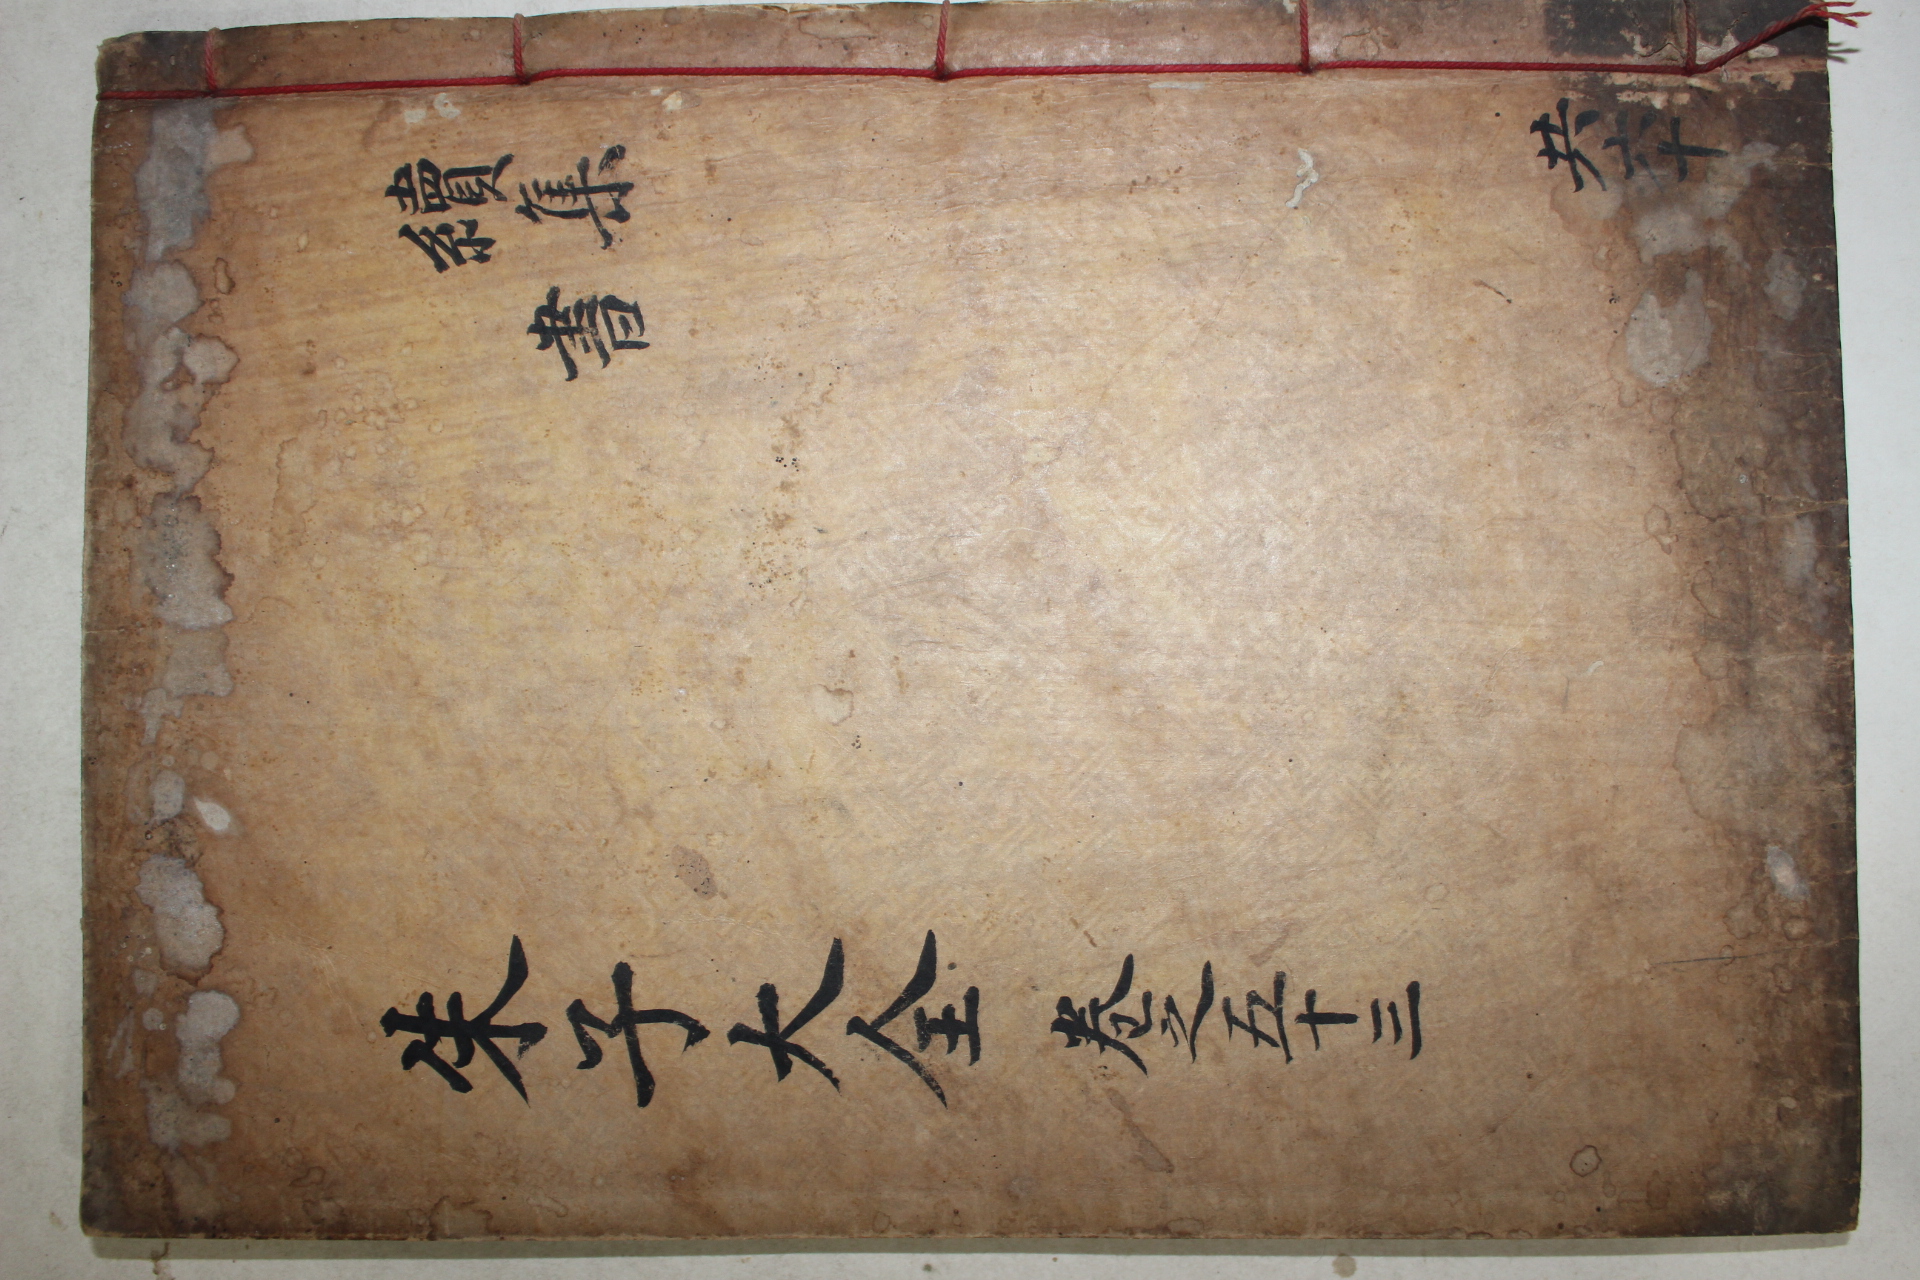 續集
書
共六十
朱子大全 卷之五十三